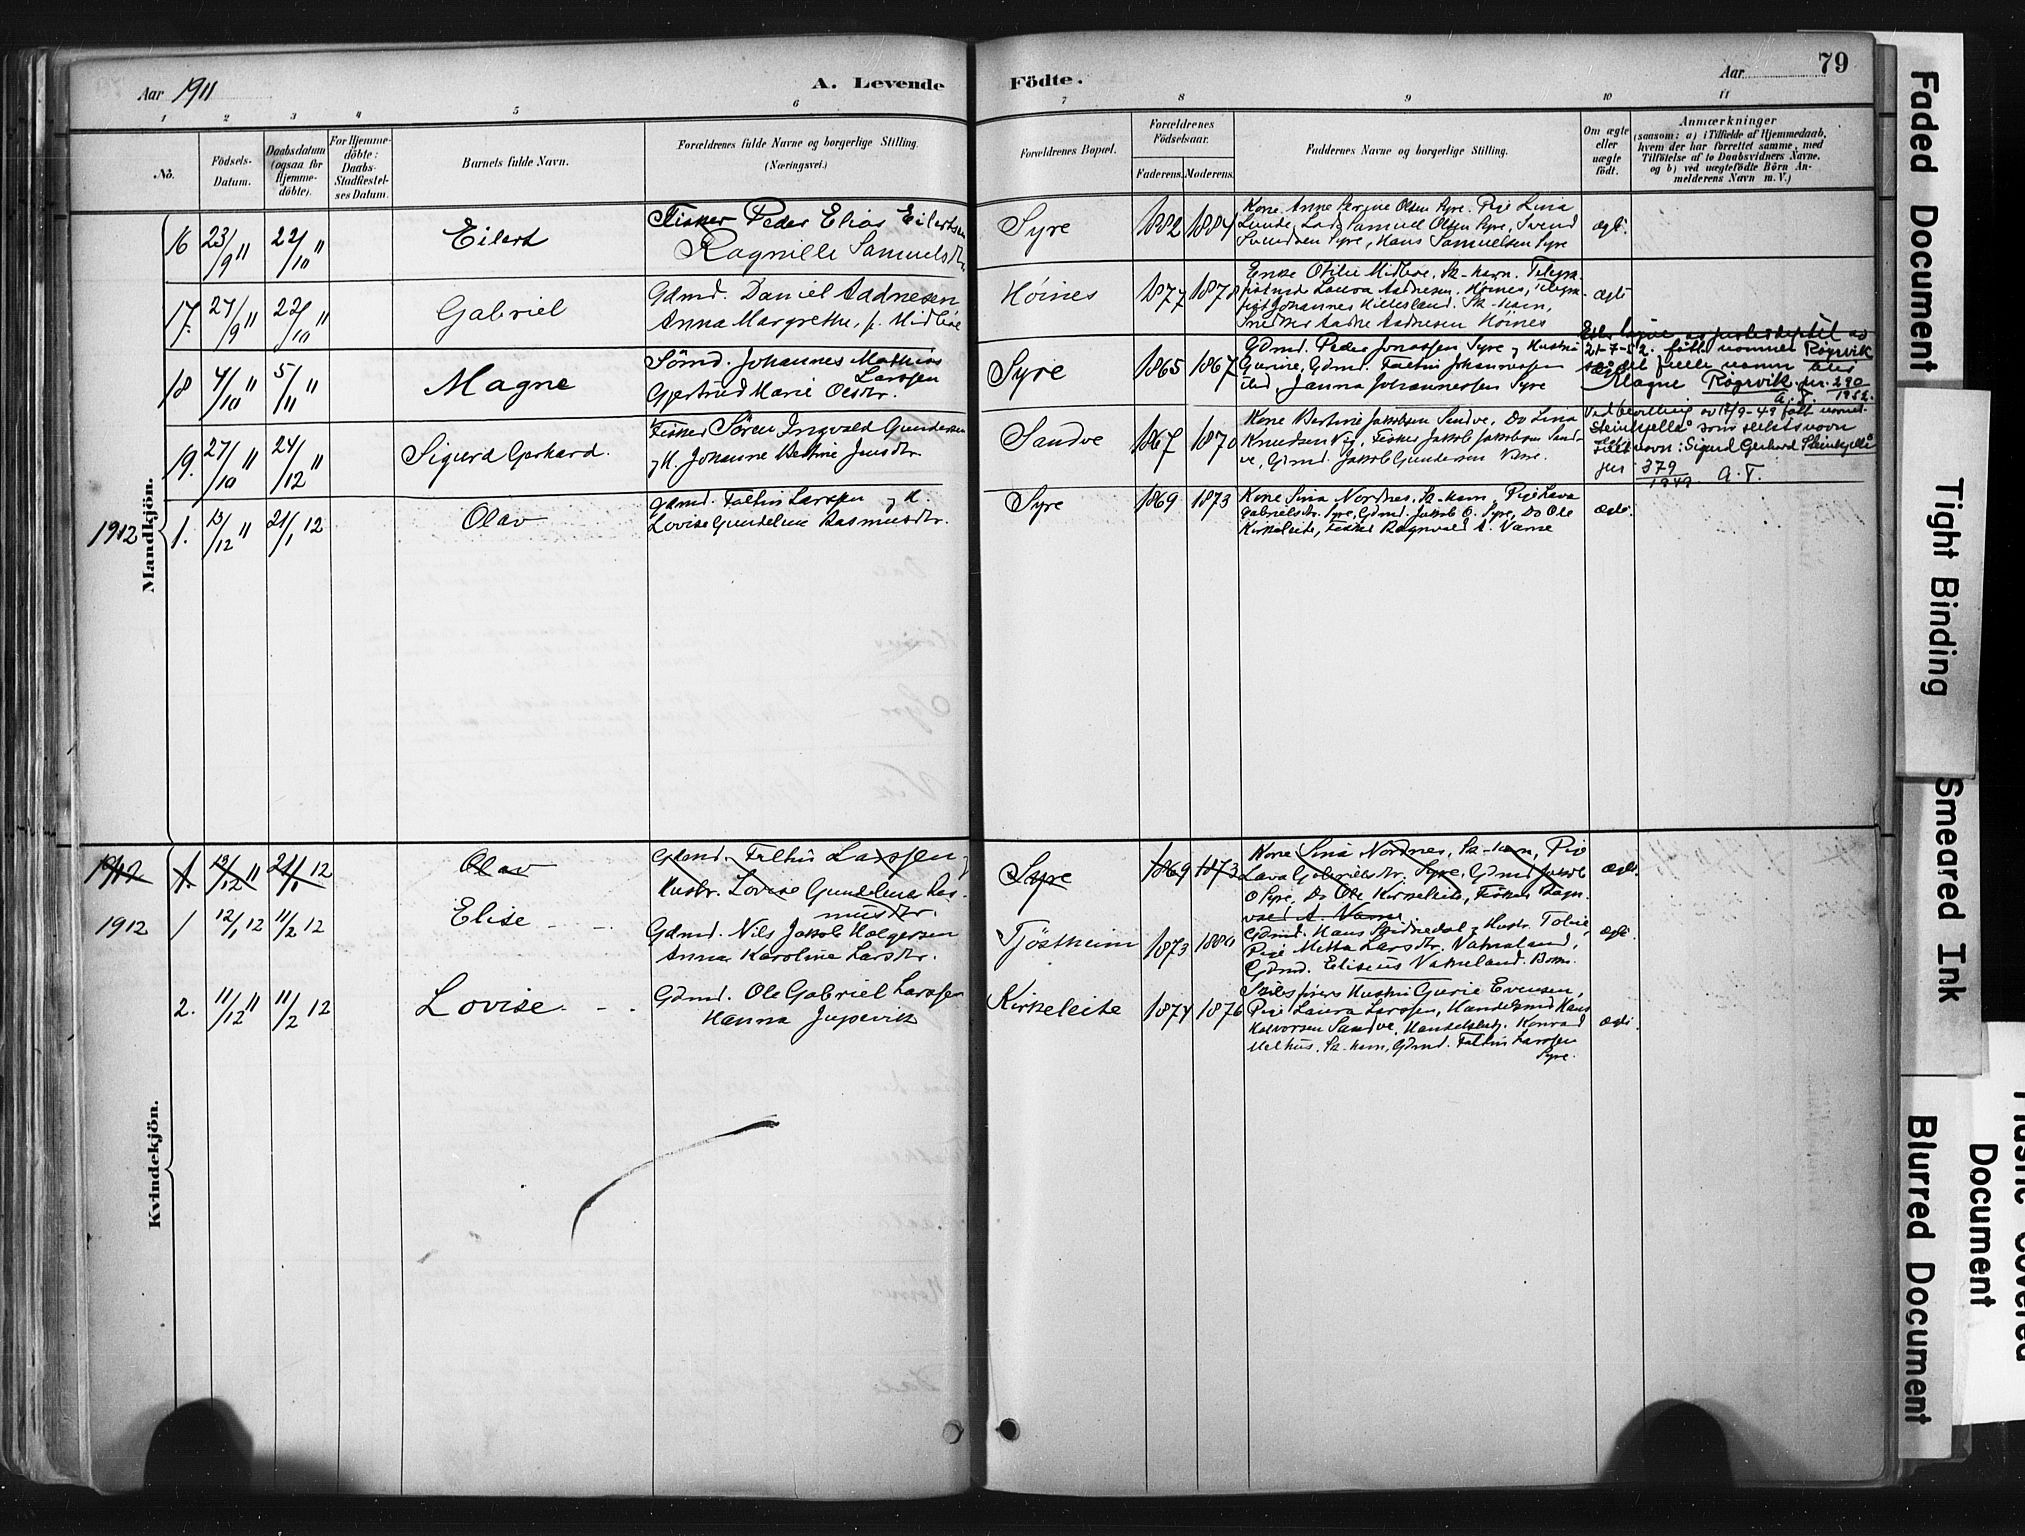 Aar 1911
A. Levende
Födte.
Aar
79
1 2 3 4 5 6 7 8 9 10 11
No.
Födsels-
Datum.
Daabsdatum
(ogsaa for
Hjemme-
döbte).
For Hjemme-
döbte:
Daabs-
Stadfæstel-
ses Datum.
Barnets fulde Navn.
Forældrenes fulde Navne og borgerlige Stilling.
(Næringsvei.)
Forældrenes Bopæl.
Forældrenes
Födselsaar.
Faderens. Moderens.
Faddernes Navne og borgerlige Stilling.
Om ægte
eller
uægte
födt.
Anmærkninger
(saasom: a) i Tilfælde af Hjemmedaab,
hvem der har forrettet samme, med
Tilföielse af to Daabsvidners Navne.
og b) ved uægtefödte Börn An-
melderens Navn m. V.)
Mandkjön.
16 23/9 11 22/10 11
Eilert
Fisker Peder Elias Eilertsen
Ragnille Samuelsdtr.
Syre
1882 1884
Kone Anne Serine Olsen Syre. Pige Lina
Lunde, Lods Samuel Olsen Syre, Svend
Svendsen Syre, Hans Samuelsen Syre
ægte.
17. 27/9 11 22/10 11
Gabriel
Gdmd. Daniel Aadnesen
Anna Margrethe, f. Midböe
Höines
1877 1878
Enke Otilie Midböe, Sk-havn. Telegra-
Laura Aadnesen, Höines, Telegra-
fist Johannes Hillesland. Sk-havn,
Snedker Aadne Aadnesen Höines
ægte
18 4/10 11 5/11 11
Magne
Sömd. Johannes Mathias
Larssen
Gjertrud Marie Olsdtr.
Syre
1865 1867
Gdmd. Peder Jonassen Syre og Hustru
Gurine, Gdmd. Faltin Johannessen
ibd, Janna Johannessen Syre
21-7-52. fått navnet Røgrvik
Magne Røgrvik. jnr. 290/1952.
A. T.
19. 27/10 11 24/12 11
Sigurd Gerhard.
Fisker Sören Ingvald Gundersen
og H. Johanne Bertine Jensdtr.
Sandve
1867 1870
Kone Bertine Jakobsen Sandve, Do Lina
Knudsen Vig, Fisker Jakob Jakobsen Sand-
ve, Gdmd. Jakob Gundersen
Ved bevilling av 17/9-49 fått navnet
Steinkjellå som slektsnavn
navn: Sigurd Gerhard Steinkjellå
jnr 379/1949 A. T.
1912 1. 13/12 11 21/1 12
Olav
Gdmd. Faltin Larssen og H.
Lovise Gundeline Rasmusdtr.
Syre
1869 1873
Kone Sina Nordnes, Sk-havn, Pige Lava
Gabrielsdtr. Syre, Gdmd. Jakob O. Syre, Do Ole
Kirkeleite, Fisker Ragnvald A. Varne
ægte.
Kvindekjön.
1912 1. 13/12 11 21/1 12
Olav
Gdmd. Faltin Larssen og
Hustr. Lovise Gundeline Ras-
musdtr.
Syre
1869 1873
Kone Sina Nordnes, Sk-havn, Pige
Lava Gabrielsdtr. Syre, Gdmd Jakob
O Syre, Do Ole Kirkeleite, Fisker Ragn-
vald A. Varne
ægte.
1912 1 12/1 12 11/2 12
Elise
Gdmd. Nils Jakob Holgersen
Anna Karoline Larsdtr.
Tjöstheim
1873 1880
Gdmd. Hans og Hustr. Tobie,
Pige Metta Larsdtr. Vatneland,
Gdmd. Eliseus Vatneland.
ægte.
2. 11/12 11 11/2 12
Lovise
Gdmd. Ole Gabriel Larssen
Hanna Jupevik
Kirkeleite
1874 1876
Skibsförers Hustru Gurie Evensen,
Pige Laura Larssen, Handelsmd Hans
Halvorsen Sandve, Handelsbetj. Konrad
Melhus, Sk-havn, Gdmd. Faltin Larssen
Syre.
ægte.
Faded Document
Tight Binding
Smeared Ink
Blurred Document
Document